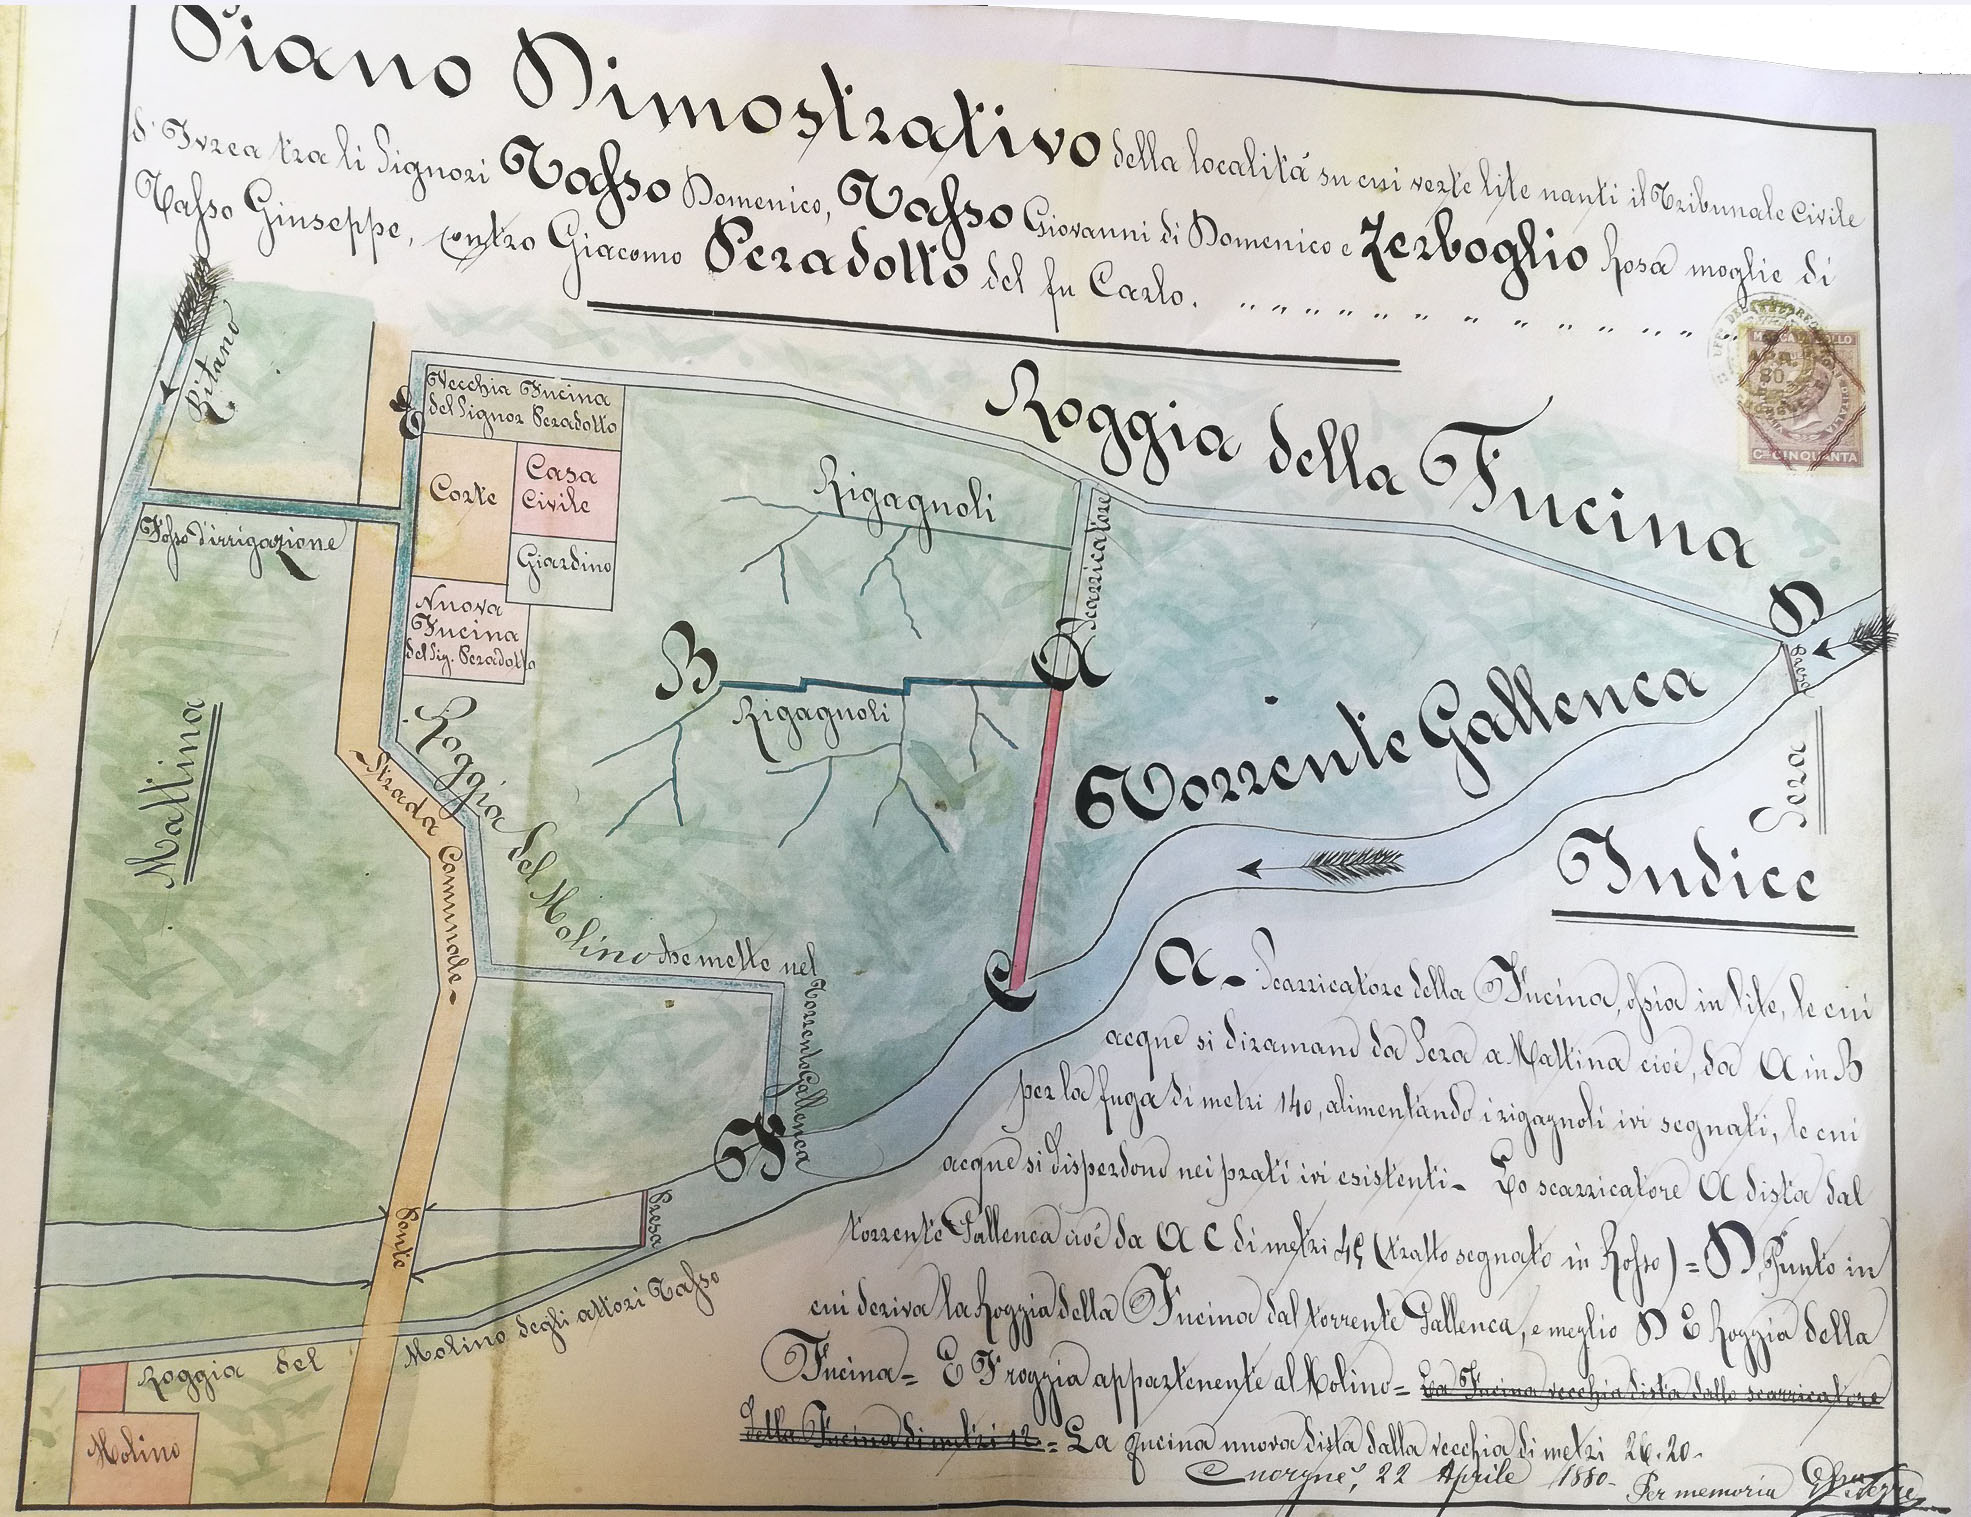 Piano Dimostrativo della località su cui verte lite nanti il Tribunale Civile
d'Ivrea tra li Signori Tasso Domenico, Tasso Giovanni di Domenico e Zerboglio Rosa moglie di
Tasso Giuseppe, contro Giacomo Peradotto del fu Carlo.
MARCA DA BOLLO
APR.
80
Cmi CINQUANTA
Ritano
E
Vecchia Fucina
del Signor Peradotto
Corte
Casa
Civile
Giardino
Nuova
Fucina
del Sig. Peradotto
Fosso d'irrigazione
Roggia della Fucina
Rigagnoli
Scarricatore
D
Presa
A
B
Rigagnoli
Torrente Gallenca
Mattina
Sera
Strada Communale
Roggia del Molino che mette nel
Torrente Gallenca
C
F
Presa
Ponte
Roggia del Molino degli attori Tasso
Molino
Indice
A - Scarricatore della Fucina, ossia in lite, le cui
acque si diramano da Sera a Mattina cioè, da A in B
per la fuga di metri 140, alimentando i rigagnoli ivi segnati, le cui
acque si disperdono nei prati ivi esistenti - Lo scarricatore A dista dal
torrente Gallenca cioè da A C di metri (tratto segnato in Rosso) = D, Punto in
cui deriva la Roggia della Fucina dal torrente Gallenca, e meglio D E Roggia della
Fucina = E F roggia appartenente al Molino = La Fucina vecchia dista dallo scarricatore
della Fucina di metri 12 = La fucina nuova dista dalla vecchia di metri 26.20.
Cuorgnè, 22 Aprile 1880.
Per memoria